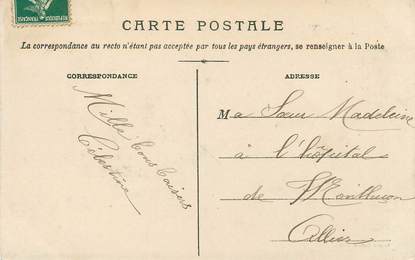 CARTE POSTALE
La correspondance au recto n'étant pas acceptée par tous les pays étrangers, se renseigner à la Poste
CORRESPONDANCE
Mille bons baisers
Célestine
ADRESSE
Ma Sœur Madeleine
à l'hôpital
de Montluçon
Allier